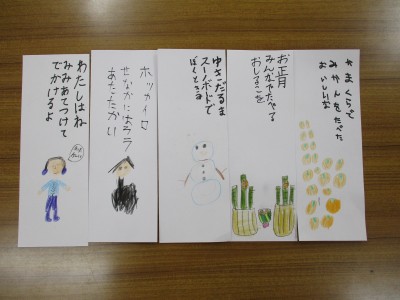 かまくらで
みかんをたべた
おいしいな
お正月
みんなでたべる
おしるこを
ゆきだるま
スーノボドで
ホッカイロ
せなかにはろう
あたたかい
わたしはね
みみあてつけて
でかけるよ